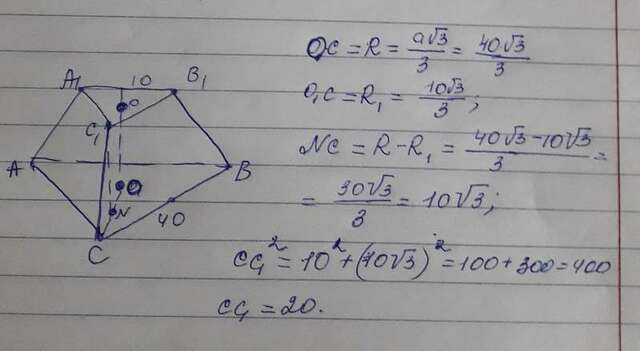 A₁ 10 B₁
O
C₁
A
B
O
N
40
C
OC = R = a√3/3 = 40√3/3
O₁C = R₁ = 10√3/3;
NC = R - R₁ = (40√3 - 10√3)/3 =
= 30√3/3 = 10√3;
CC₁² = 10² + (10√3)² = 100 + 300 = 400
CC₁ = 20.